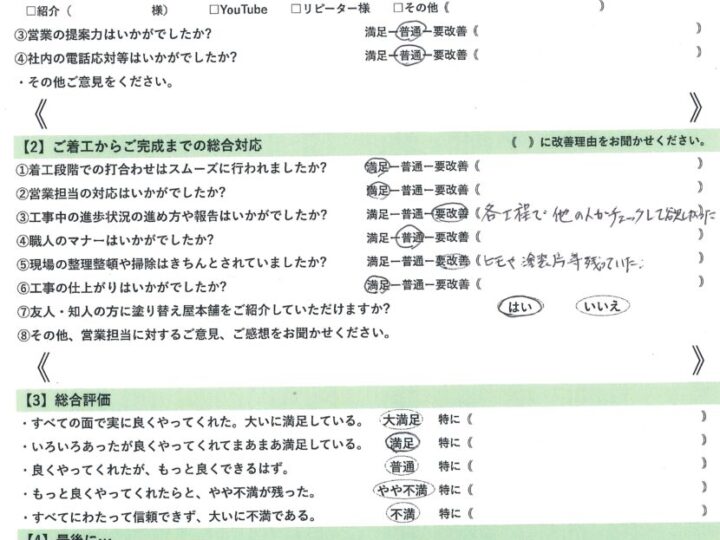 □紹介（　　　　　　　様）　□YouTube　□リピーター様　□その他《　　　　　　　　　　　》
③営業の提案力はいかがでしたか?　満足ー普通ー要改善《　　　　　　　　　　》
④社内の電話応対等はいかがでしたか?　満足ー普通ー要改善《　　　　　　　　　　》
・その他ご意見をください。
《　　　　　　　　　　》
【2】ご着工からご完成までの総合対応　《　》に改善理由をお聞かせください。
①着工段階での打合わせはスムーズに行われましたか?　満足ー普通ー要改善《　　　　　　　　　　》
②営業担当の対応はいかがでしたか?　満足ー普通ー要改善《　　　　　　　　　　》
③工事中の進歩状況の進め方や報告はいかがでしたか?　満足ー普通ー要改善《各工程で他の人がチェックして欲しかった
④職人のマナーはいかがでしたか?　満足ー普通ー要改善《　　　　　　　　　　》
⑤現場の整理整頓や掃除はきちんとされていましたか?　満足ー普通ー要改善《ヒモや塗装片等残っていた。
⑥工事の仕上がりはいかがでしたか?　満足ー普通ー要改善《　　　　　　　　　　》
⑦友人・知人の方に塗り替え屋本舗をご紹介していただけますか?　はい　いいえ
⑧その他、営業担当に対するご意見、ご感想をお聞かせください。
《　　　　　　　　　　》
【3】総合評価
・すべての面で実に良くやってくれた。大いに満足している。　大満足　特に《　　　　　　　　　　》
・いろいろあったが良くやってくれてまあまあ満足している。　満足　特に《　　　　　　　　　　》
・良くやってくれたが、もっと良くできるはず。　普通　特に《　　　　　　　　　　》
・もっと良くやってくれたらと、やや不満が残った。　やや不満　特に《　　　　　　　　　　》
・すべてにわたって信頼できず、大いに不満である。　不満　特に《　　　　　　　　　　》
【4】最後に…